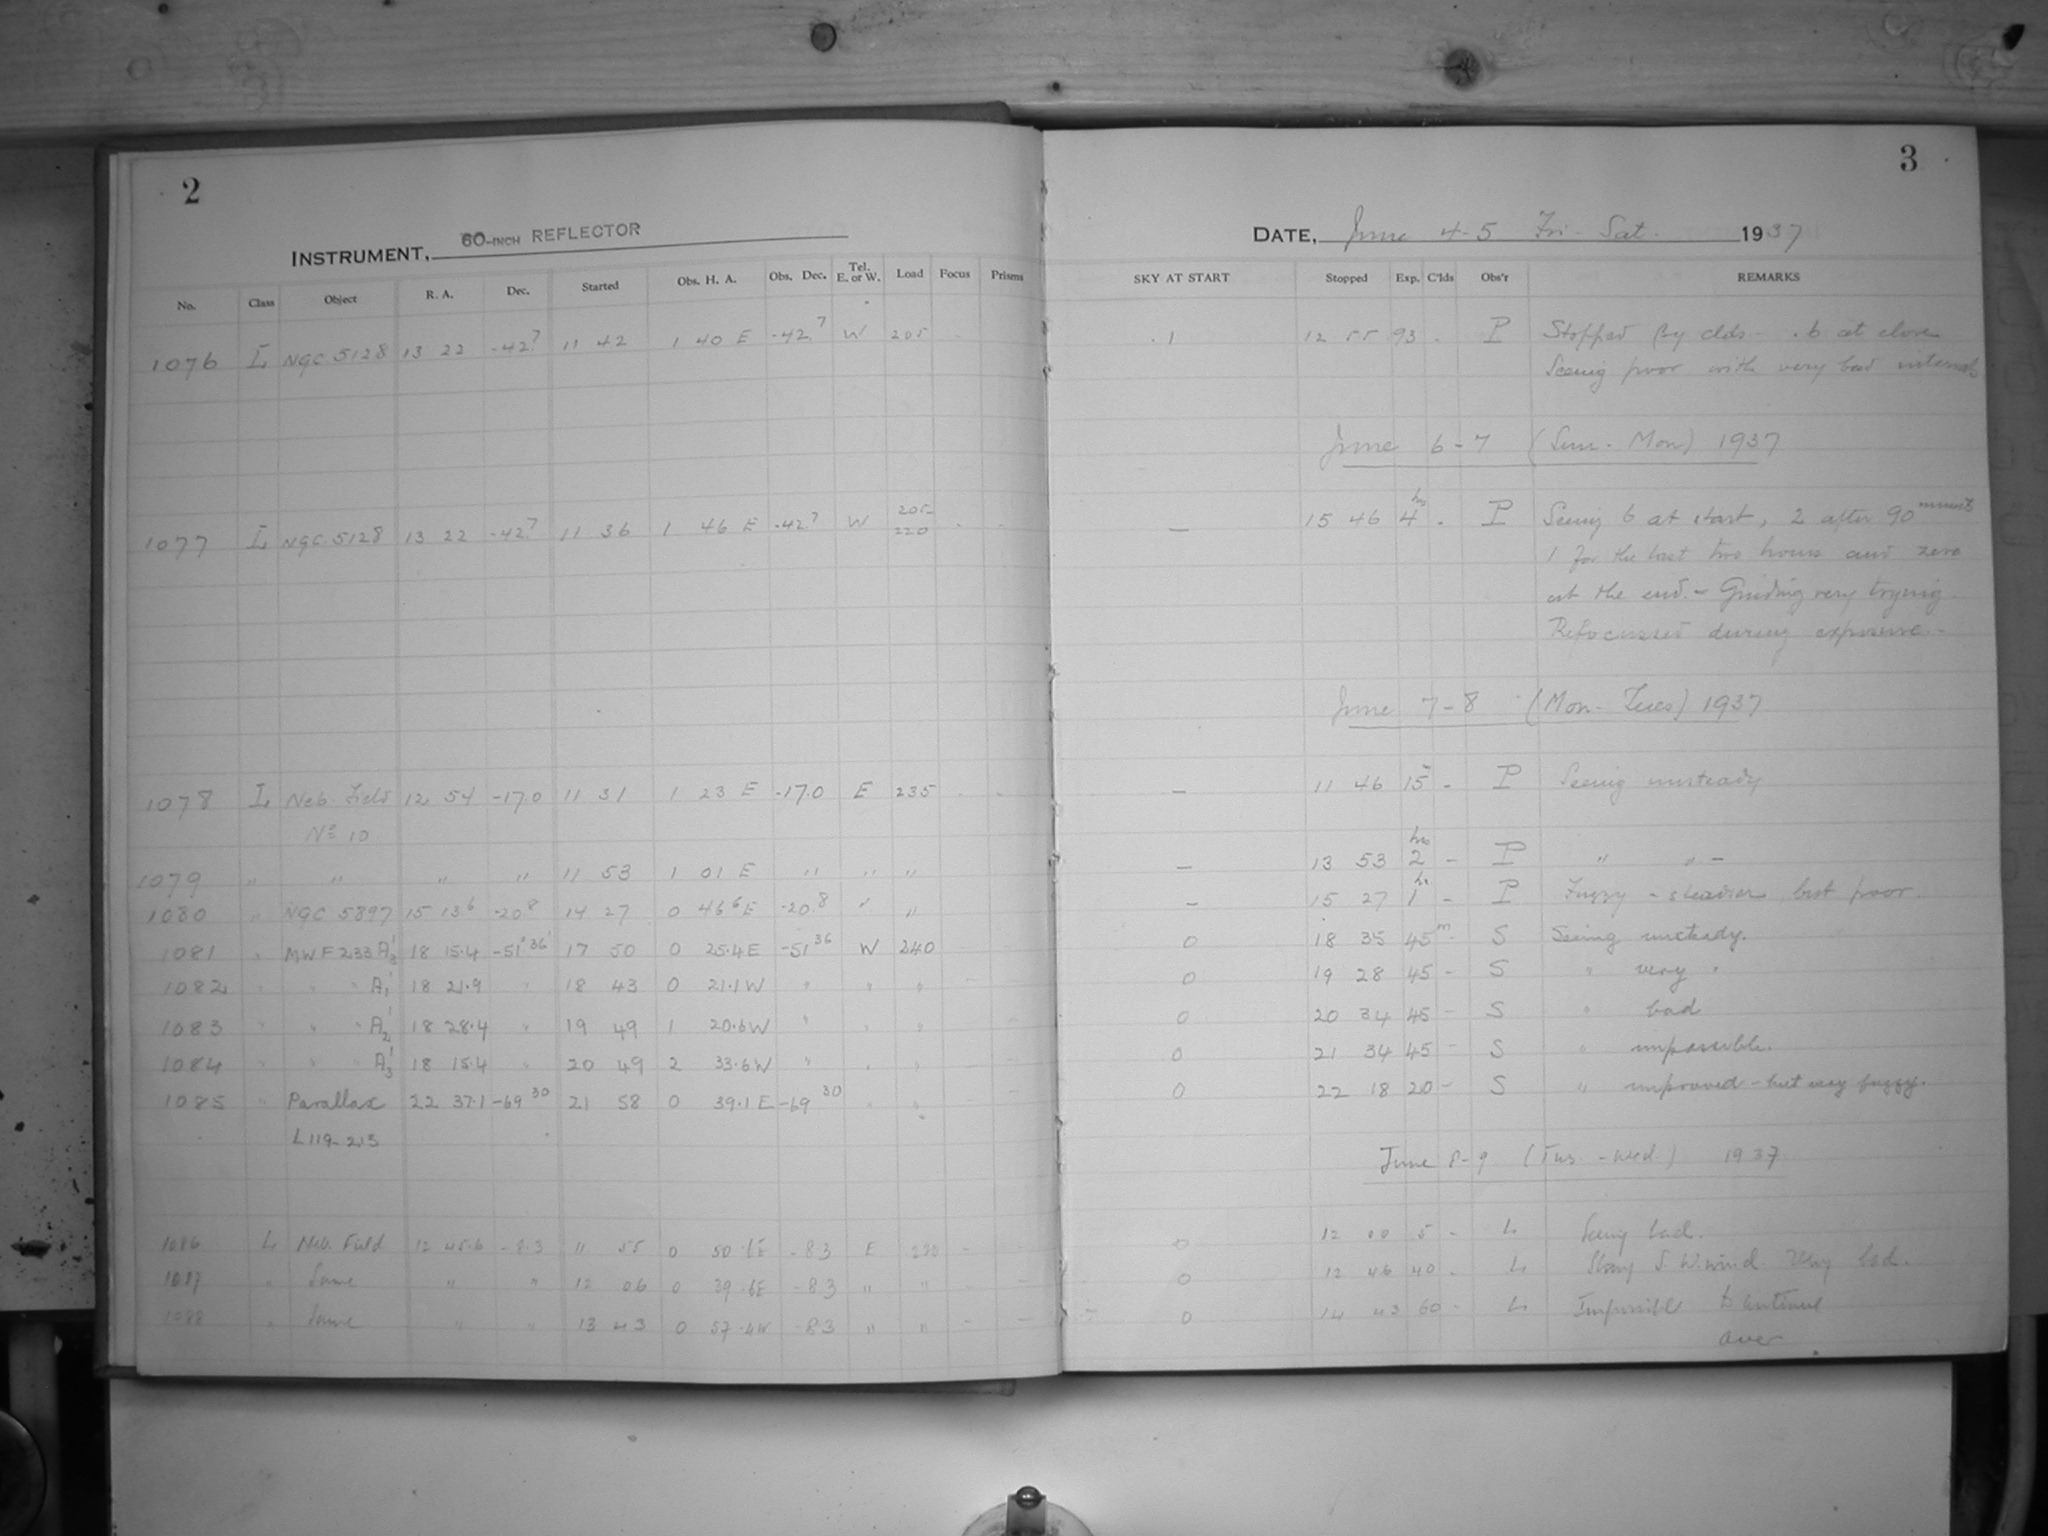 2
INSTRUMENT, 60-INCH REFLECTOR
No. Class Object R. A. Dec. Started Obs. H. A. Obs. Dec. Tel. E. or W. Load Focus Prisms
1076 L NGC 5128 13 22 -42.7 11 42 1 40 E -42.7 W 205
1077 L NGC 5128 13 22 -42.7 11 36 1 46 E -42.7 W 205-220
1078 L Neb. Field 12 54 -17.0 11 31 1 23 E -17.0 E 235
No 10
1079 " " " " 11 53 1 01 E " " "
1080 " NGC 5897 15 13.6 -20.8 14 27 0 46.6 E -20.8 " "
1081 " MWF 233 18 15.4 -51° 36' 17 50 0 25.4 E -51 36 W 240
1082 " " " A1 18 21.9 " 18 43 0 21.1 W " " "
1083 " " " A2' 18 28.4 " 19 49 1 20.6 W " " "
1084 " " " A3' 18 15.4 " 20 49 2 33.6 W " " "
1085 " Parallax 22 37.1 -69 30 21 58 0 39.1 E -69 30 " "
L 119-213
1086 L Neb. Field 12 45.6 -8.3 11 55 0 50.1 E -8.3 E
1087 " Same " " 12 06 0 39.1 E -8.3 " "
1088 " Same " " 13 43 0 57.4 W -8.3 " "
3
DATE, June 4-5 Fri - Sat. 1937
SKY AT START Stopped Exp. C'lds Obs'r REMARKS
.1 12 55 93 . P Stopped by clds - .6 at close
Seeing poor with very bad intervals
June 6-7 (Sun - Mon) 1937
— 15 46 4 hrs . P Seeing 6 at start, 2 after 90 minutes
1 for the last two hours and zero
at the end. - Guiding very trying
Refocussed during exposure -
June 7-8 (Mon - Tues) 1937
— 11 46 15 - P Seeing unsteady
— 13 53 2 hrs - P " " -
— 15 27 1 hr - P Fuzzy - steadier but poor.
0 18 35 45 m. S Seeing unsteady.
0 19 28 45 - S " very "
0 20 34 45 - S " bad
0 21 34 45 - S " impossible.
0 22 18 20 - S " improved - but very fuzzy.
June 8-9 (Tues. - Wed.) 1937
0 12 00 5 - L Seeing bad.
0 12 46 40 - L Strong S. W. wind. Very bad.
0 14 43 60 - L Impossible to continue
over